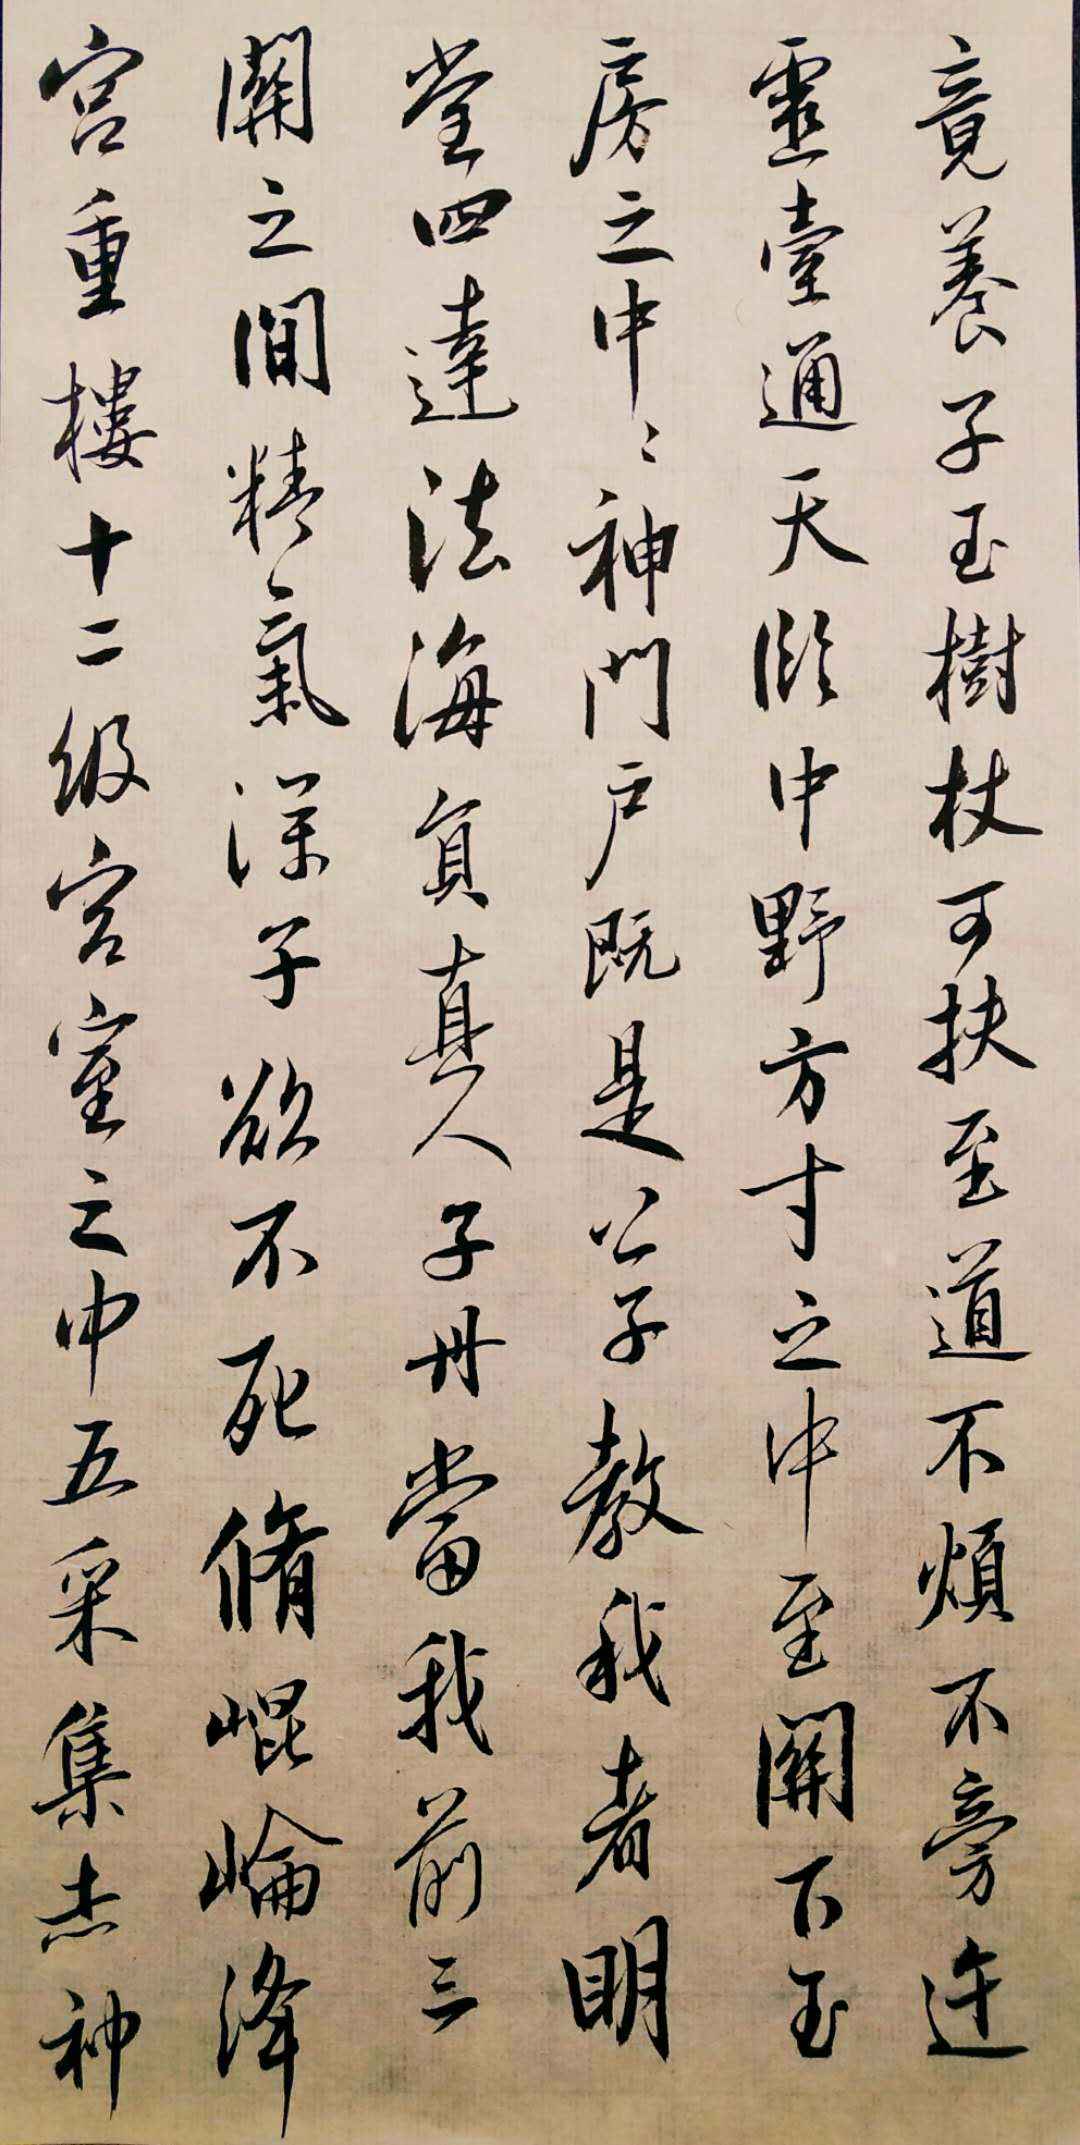 竟養子玉樹杖可扶至道不煩不旁迕
靈臺通天臨中野方寸之中至關下玉
房之中〻神門戶既是公子教我者明
堂四達法海員真人子丹當我前三
關之間精氣深子欲不死脩崐崘絳
宮重樓十二級宮室之中五采集赤神